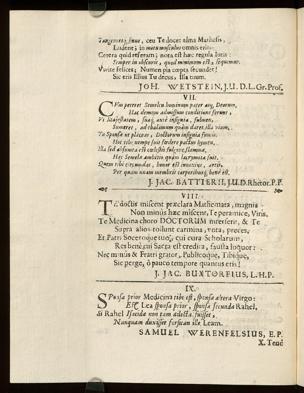 Tangentes, sinus, ceu Te docet alma Mathesis,
Liisdem; in
Cetera quid referam; nota est hæc regula Juris:
Semper in obscuris, quod minimum est, sequimur.
Vivite felices; Numen pia cœpta secundet!
Sic eris Illius Tu decus, Illa tuum.
JOH. WETSTEIN, J.U.D.L.Gr.Prof.
VII.
CUm peteret Semelen hominum pater atq; Deorum,
Hac demum admissum conditione ferunt;
Ut Majestatem, sua, ante insignia, fulmen,
Sumeret, ad thalamum quàm daret illa viam.
Tu Sponsa ut placeas, Doctorum insignia sumis.
Hac tibi nempe fuit fœdere pactus hymen.
Illa sed afflata est cœlestis fulgure flammæ,
Hæc Semele ambitio quàm lacrymosa fuit.
Quem tibi circumdas, honor est innoxius, artis,
Per quam nuam membris corporibusq; bene est.
J. JAC. BATTIERII, J.U.D. Rhetor. P.P.
VIII.
Tu doctis miscent præclara Mathemata, magnia
Non minùs hæc miscent, Te peramice, Viris.
Te Medicina choro DOCTORUM inserere, & Te
Supra alios tollunt carmina, vota, preces,
Et Patri Soceroque tuo, cui cura Scholarum,
Res bene cui Sacra est credita, fausta loquor:
Nec minùs & Fratri grator, Publicoque, Tibique,
Sic perge, ô pauco tempore quantus eris!
J. JAC. BUXTORFIUS, L.H.P.
IX.
SPonsa prior Medicina tibi est, sponsa altera Virgo:
Est Lea sponsa prior, sponsa secunda Rahel,
Si Rahel Isacidæ non tam adlecta fuisset,
Nunquam duxisset forsitan ille Leam.
SAMUEL WERENFELSIUS, E.P.
X. Tend